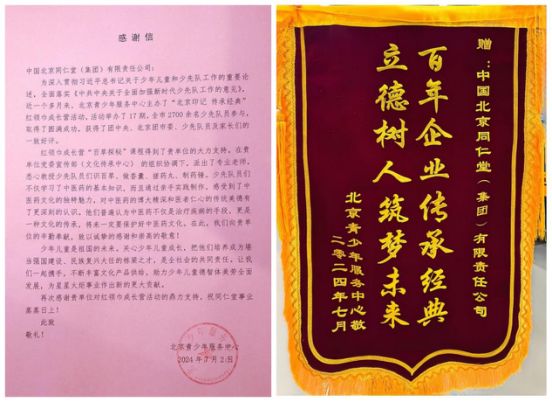 感谢信
中国北京同仁堂（集团）有限责任公司：
为深入贯彻习近平总书记关于少年儿童和少先队工作的重要论
述，全面落实《中共中央关于全面加强新时代少先队工作的意见》，
近一个多月来，北京青少年服务中心主办了“北京印记 传承经典”
红领巾成长营活动，活动举办了17期，全市2700余名少先队员参与，
取得了圆满成功。获得了团中央、北京团市委、少先队员及家长们的
一致好评。
红领巾成长营“百草探秘”课程得到了贵单位的大力支持。在贵
单位党委宣传部（文化传承中心）的组织协调下，派出了专业老师，
悉心教授少先队员们识百草、做香囊、搓药丸、制药锤。少先队员们
不仅学习了中医药的基本知识，而且通过亲手实践制作，感受到了中
医药文化的独特魅力，对中医药的博大精深和医者仁心的传统美德有
了更深刻的认识。他们普遍认为中医药不仅是治疗疾病的手段，更是
一种文化的传承，将来一定要保护好中医药文化。在此，我们向贵单
位的辛勤奉献，致以诚挚的感谢和崇高的敬意！
少年儿童是祖国的未来。关心少年儿童成长，把他们培养成为堪
当强国建设、民族复兴大任的栋梁之才，是全社会的共同责任，让我
们一起携手，不断丰富文化产品供给，助力少年儿童德智体美劳全面
发展，为星星火炬事业作出新的更大贡献。
再次感谢贵单位对红领巾成长营活动的鼎力支持。祝同仁堂事业
蒸蒸日上！
此致
敬礼！
北京青少年服务中心
2024年7月2日
赠：中国北京同仁堂（集团）有限责任公司
百年企业传承经典
立德树人筑梦未来
北京青少年服务中心敬
二〇二四年七月